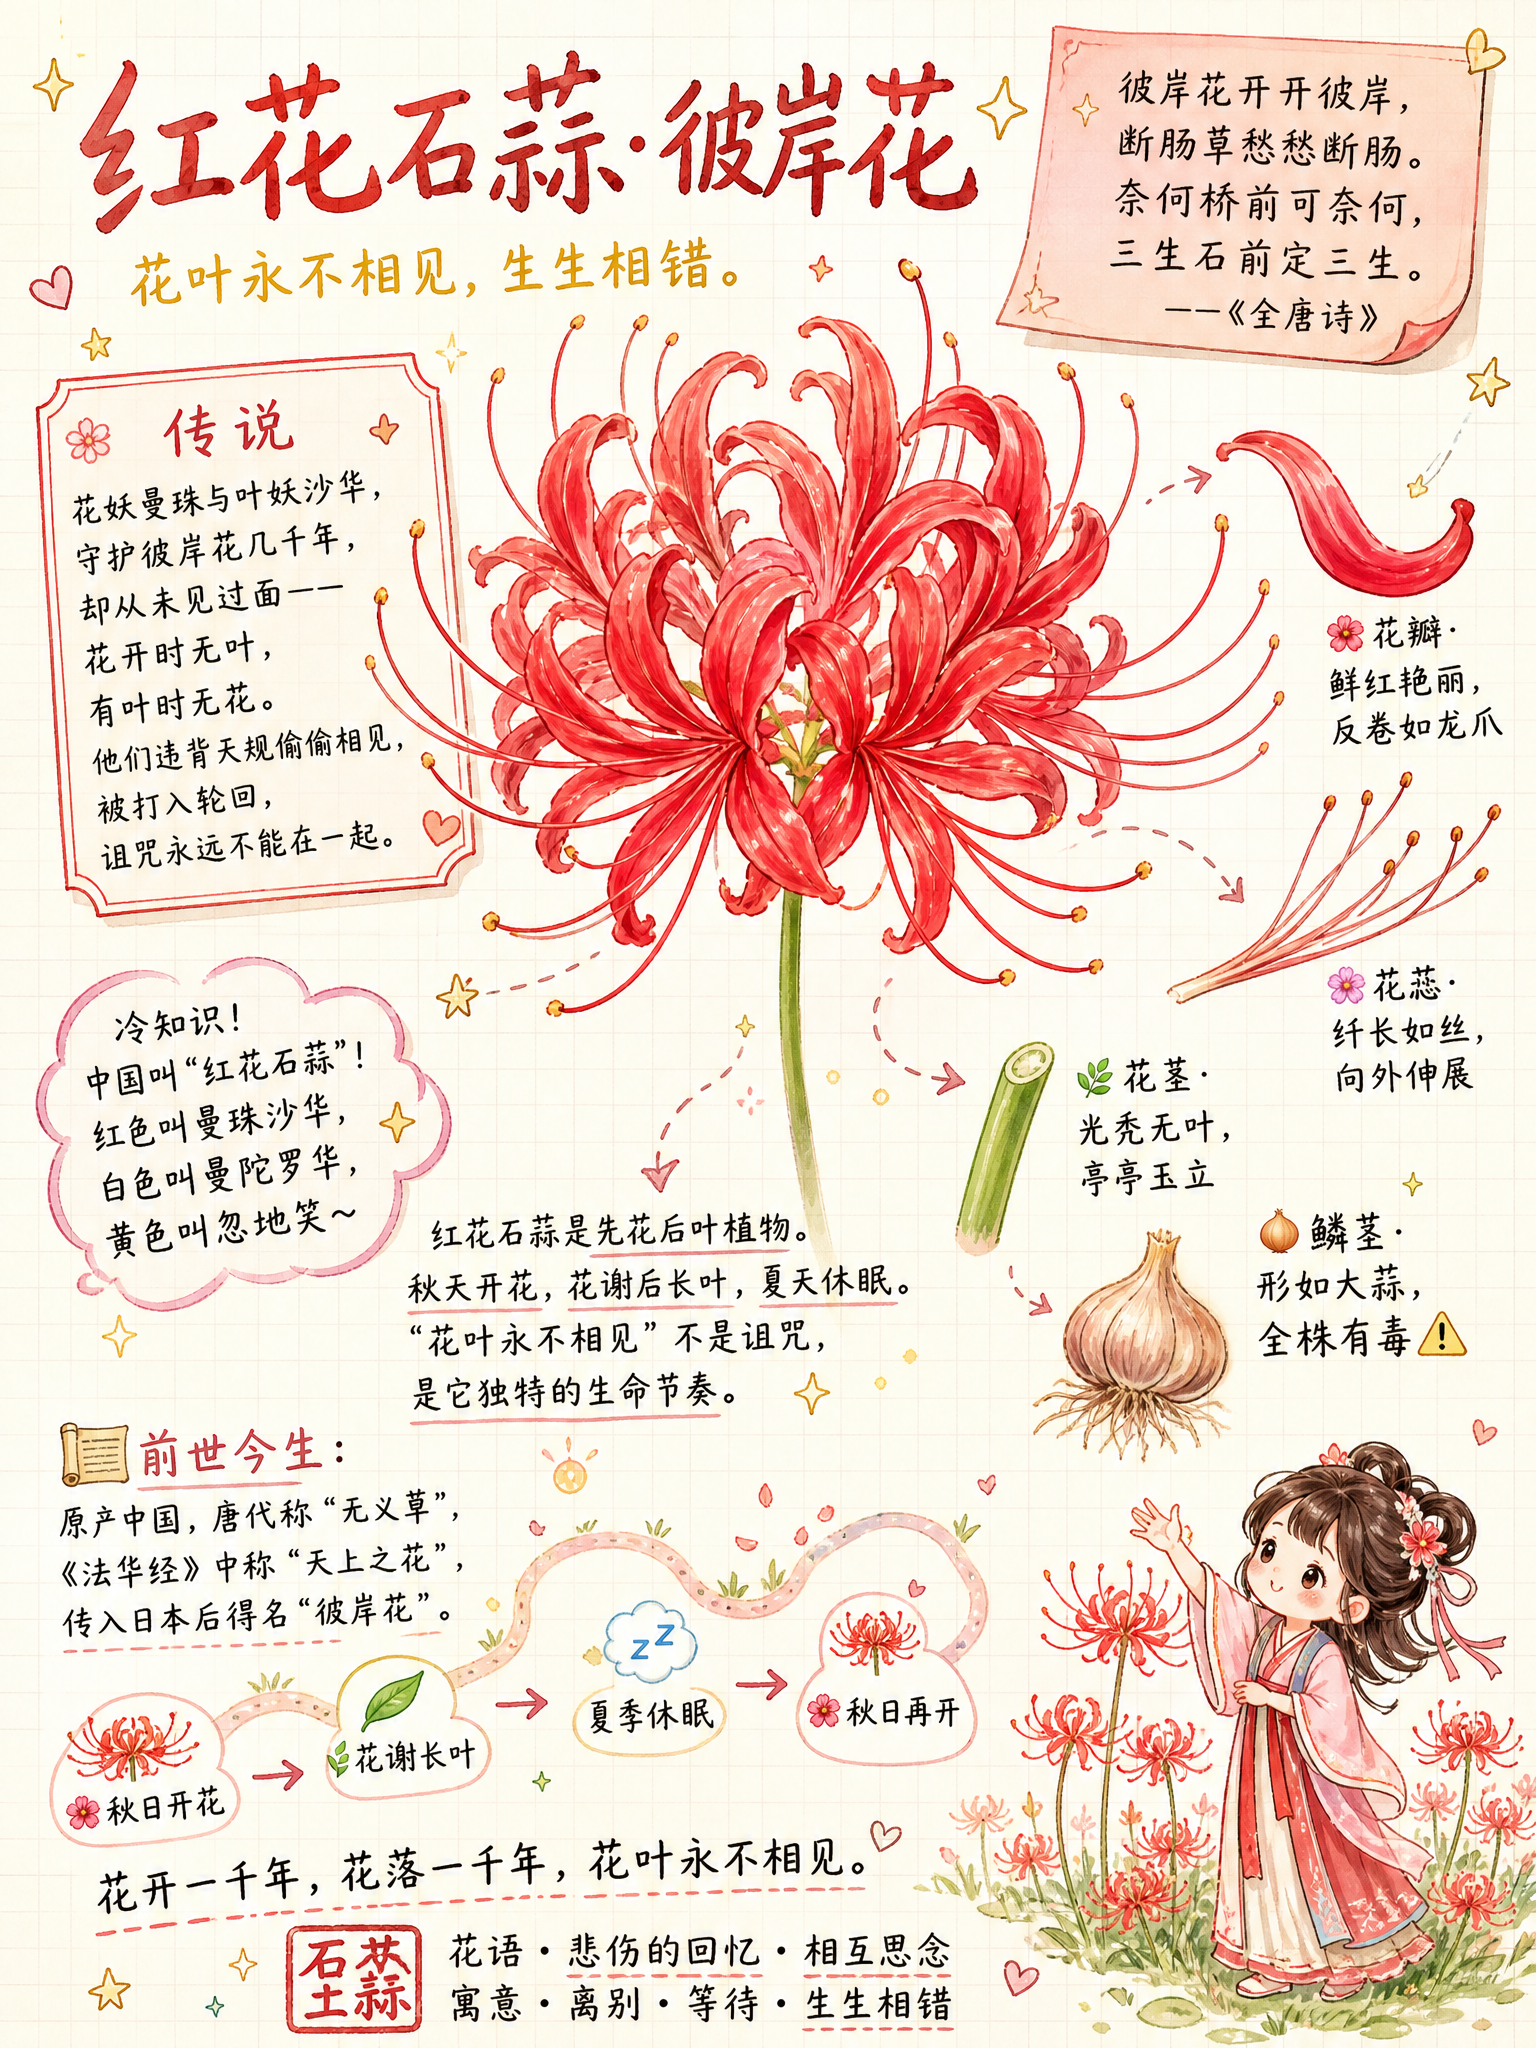 红花石蒜·彼岸花
花叶永不相见，生生相错。
彼岸花开开彼岸，
断肠草愁愁断肠。
奈何桥前可奈何，
三生石前定三生。
——《全唐诗》
传说
花妖曼珠与叶妖沙华，
守护彼岸花几千年，
却从未见过面——
花开时无叶，
有叶时无花。
他们违背天规偷偷相见，
被打入轮回，
诅咒永远不能在一起。
花瓣·
鲜红艳丽，
反卷如龙爪
花蕊·
纤长如丝，
向外伸展
花茎·
光秃无叶，
亭亭玉立
鳞茎·
形如大蒜，
全株有毒
冷知识！
中国叫“红花石蒜”！
红色叫曼珠沙华，
白色叫曼陀罗华，
黄色叫忽地笑～
红花石蒜是先花后叶植物。
秋天开花，花谢后长叶，夏天休眠。
“花叶永不相见”不是诅咒，
是它独特的生命节奏。
前世今生：
原产中国，唐代称“无义草”，
《法华经》中称“天上之花”，
传入日本后得名“彼岸花”。
秋日开花
花谢长叶
zZ
夏季休眠
秋日再开
花开一千年，花落一千年，花叶永不相见。
花语·悲伤的回忆·相互思念
寓意·离别·等待·生生相错